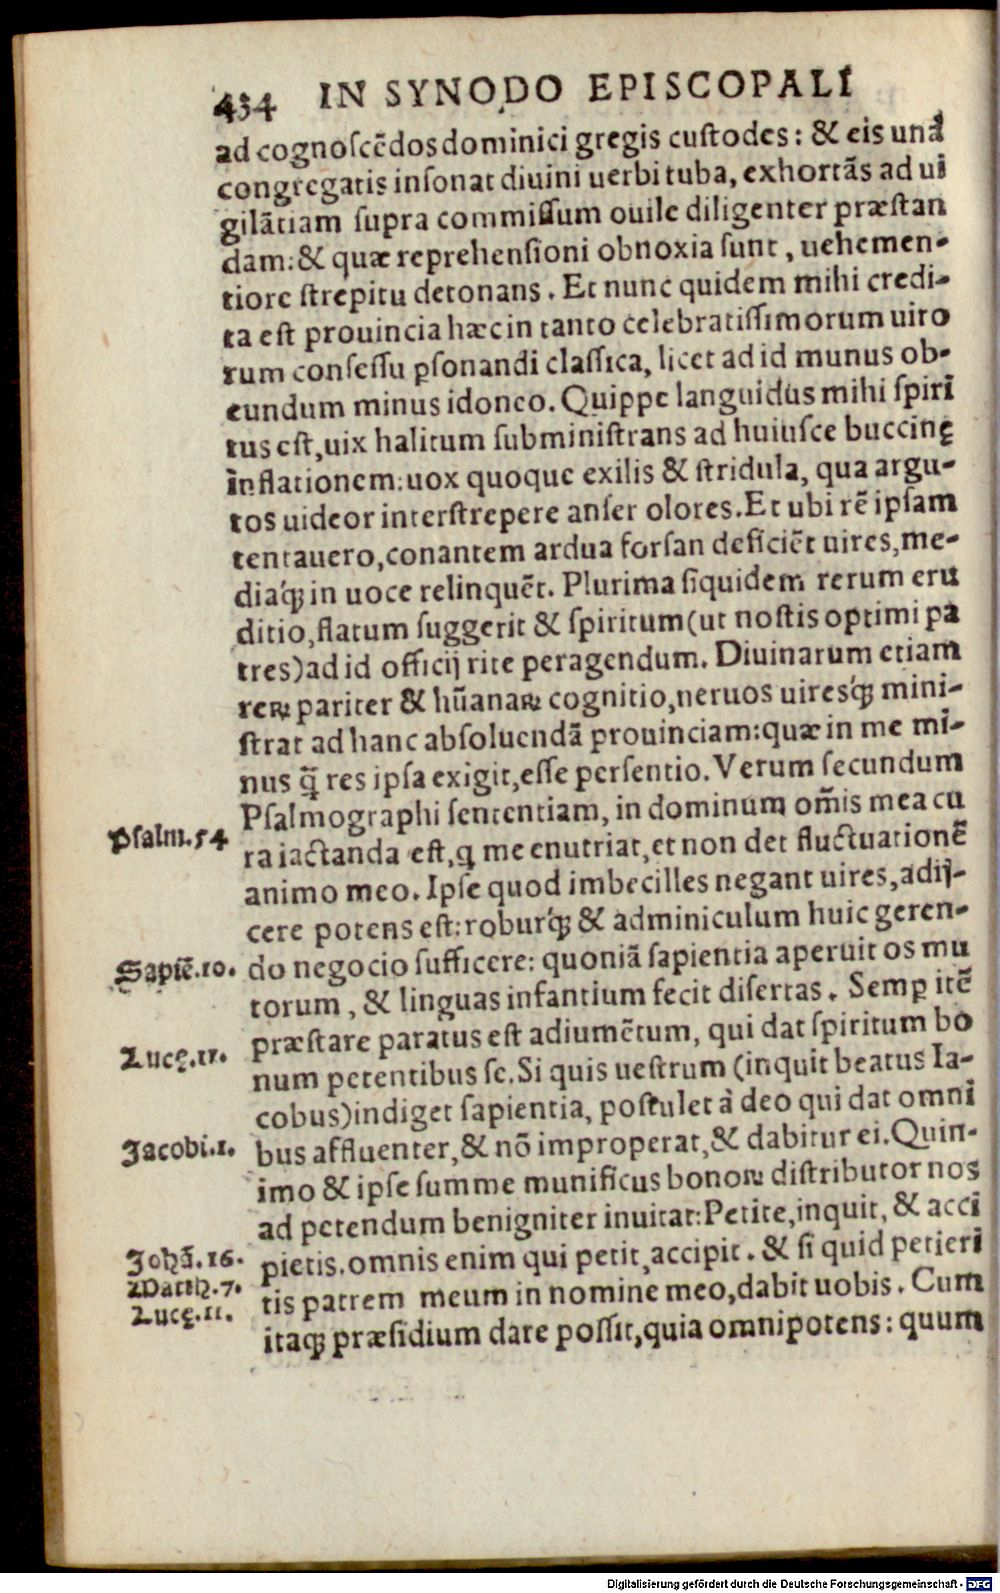 434 IN SYNODO EPISCOPALI
ad cognoscẽdos dominici gregis custodes: & eis unâ
congregatis insonat diuini uerbi tuba, exhortãs ad ui
gilãtiam supra commissum ouile diligenter præstan
dam: & quæ reprehensioni obnoxia sunt, uehemen-
tiore strepitu detonans. Et nunc quidem mihi credi-
ta est prouincia hæc in tanto celebratissimorum uiro
rum consessu ꝑsonandi classica, licet ad id munus ob-
eundum minus idoneo. Quippe languidus mihi spiri
tus est, uix halitum subministrans ad huiusce buccinę
inflationem: uox quoque exilis & stridula, qua argu-
tos uideor interstrepere anser olores. Et ubi rẽ ipsam
tentauero, conantem ardua forsan deficiẽt uires, me-
diaq́; in uoce relinquẽt. Plurima siquidem rerum eru
ditio, flatum suggerit & spiritum (ut nostis optimi pa
tres) ad id officij rite peragendum. Diuinarum etiam
rerꝝ pariter & hũanaꝝ cognitio, neruos uiresq́; mini-
strat ad hanc absoluendã prouinciam: quæ in me mi-
nus q̃ res ipsa exigit, esse persentio. Verum secundum
Psalmographi sententiam, in dominum om̃is mea cu
Psalm.54
ra iactanda est, q me enutriat, et non det fluctuationẽ
animo meo. Ipse quod imbecilles negant uires, adij-
cere potens est: roburq́; & adminiculum huic geren-
Sapiẽ.10.
do negocio sufficere: quoniã sapientia aperuit os mu
torum, & linguas infantium fecit disertas. Semꝑ itẽ
præstare paratus est adiumẽtum, qui dat spiritum bo
Lucę.11.
num petentibus se. Si quis uestrum (inquit beatus Ia-
cobus) indiget sapientia, postulet à deo qui dat omni
Jacobi.1.
bus affluenter, & nõ improperat, & dabitur ei. Quin-
imo & ipse summe munificus bonoꝝ distributor nos
ad petendum benigniter inuitat: Petite, inquit, & acci
Johã.16.
pietis. omnis enim qui petit, accipit. & si quid petieri
Matth.7.
tis patrem meum in nomine meo, dabit uobis. Cum
Lucę.11.
itaq; præsidium dare possit, quia omnipotens: quum
Digitalisierung gefördert durch die Deutsche Forschungsgemeinschaft - DFG